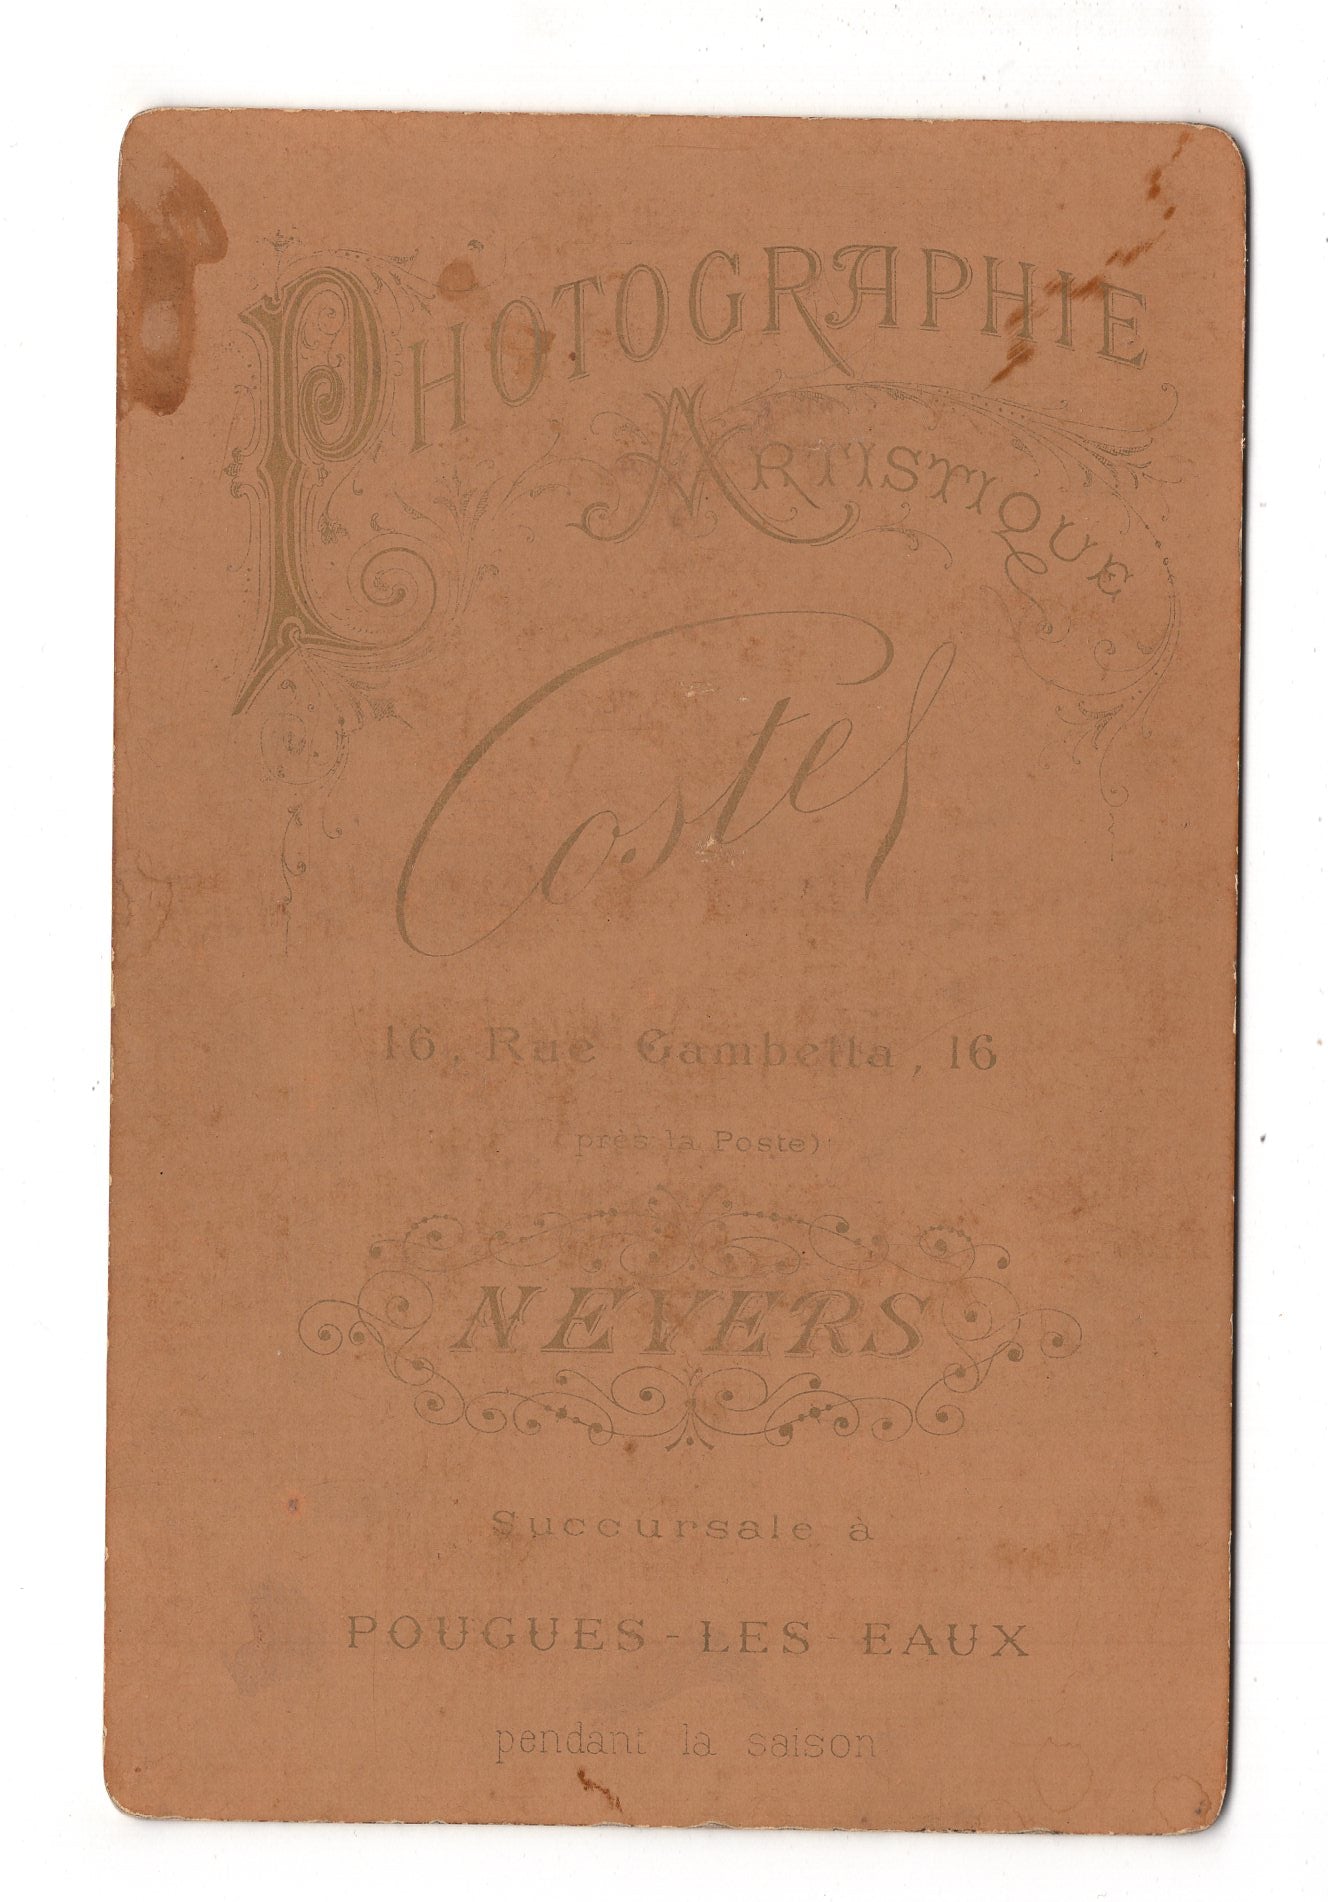 PHOTOGRAPHIE
ARTISTIQUE
Costes
16, Rue Gambetta, 16
près la Poste)
NEVERS
Succursale à
POUGUES-LES-EAUX
pendant la saison